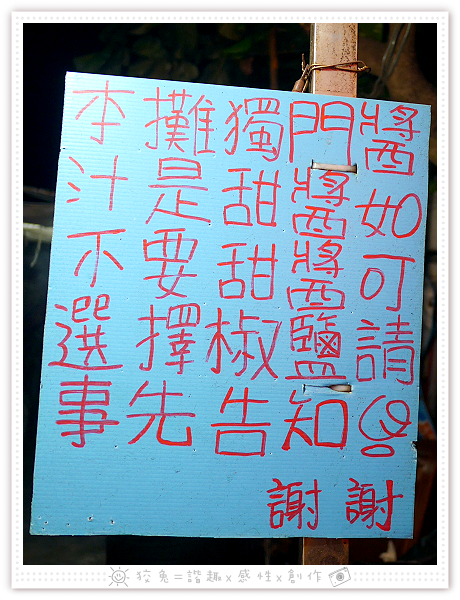 本攤獨門醬
汁是甜醬如
不要甜醬可
選擇椒鹽請
事先告知!
謝謝
狡兔=諧趣x感性x創作